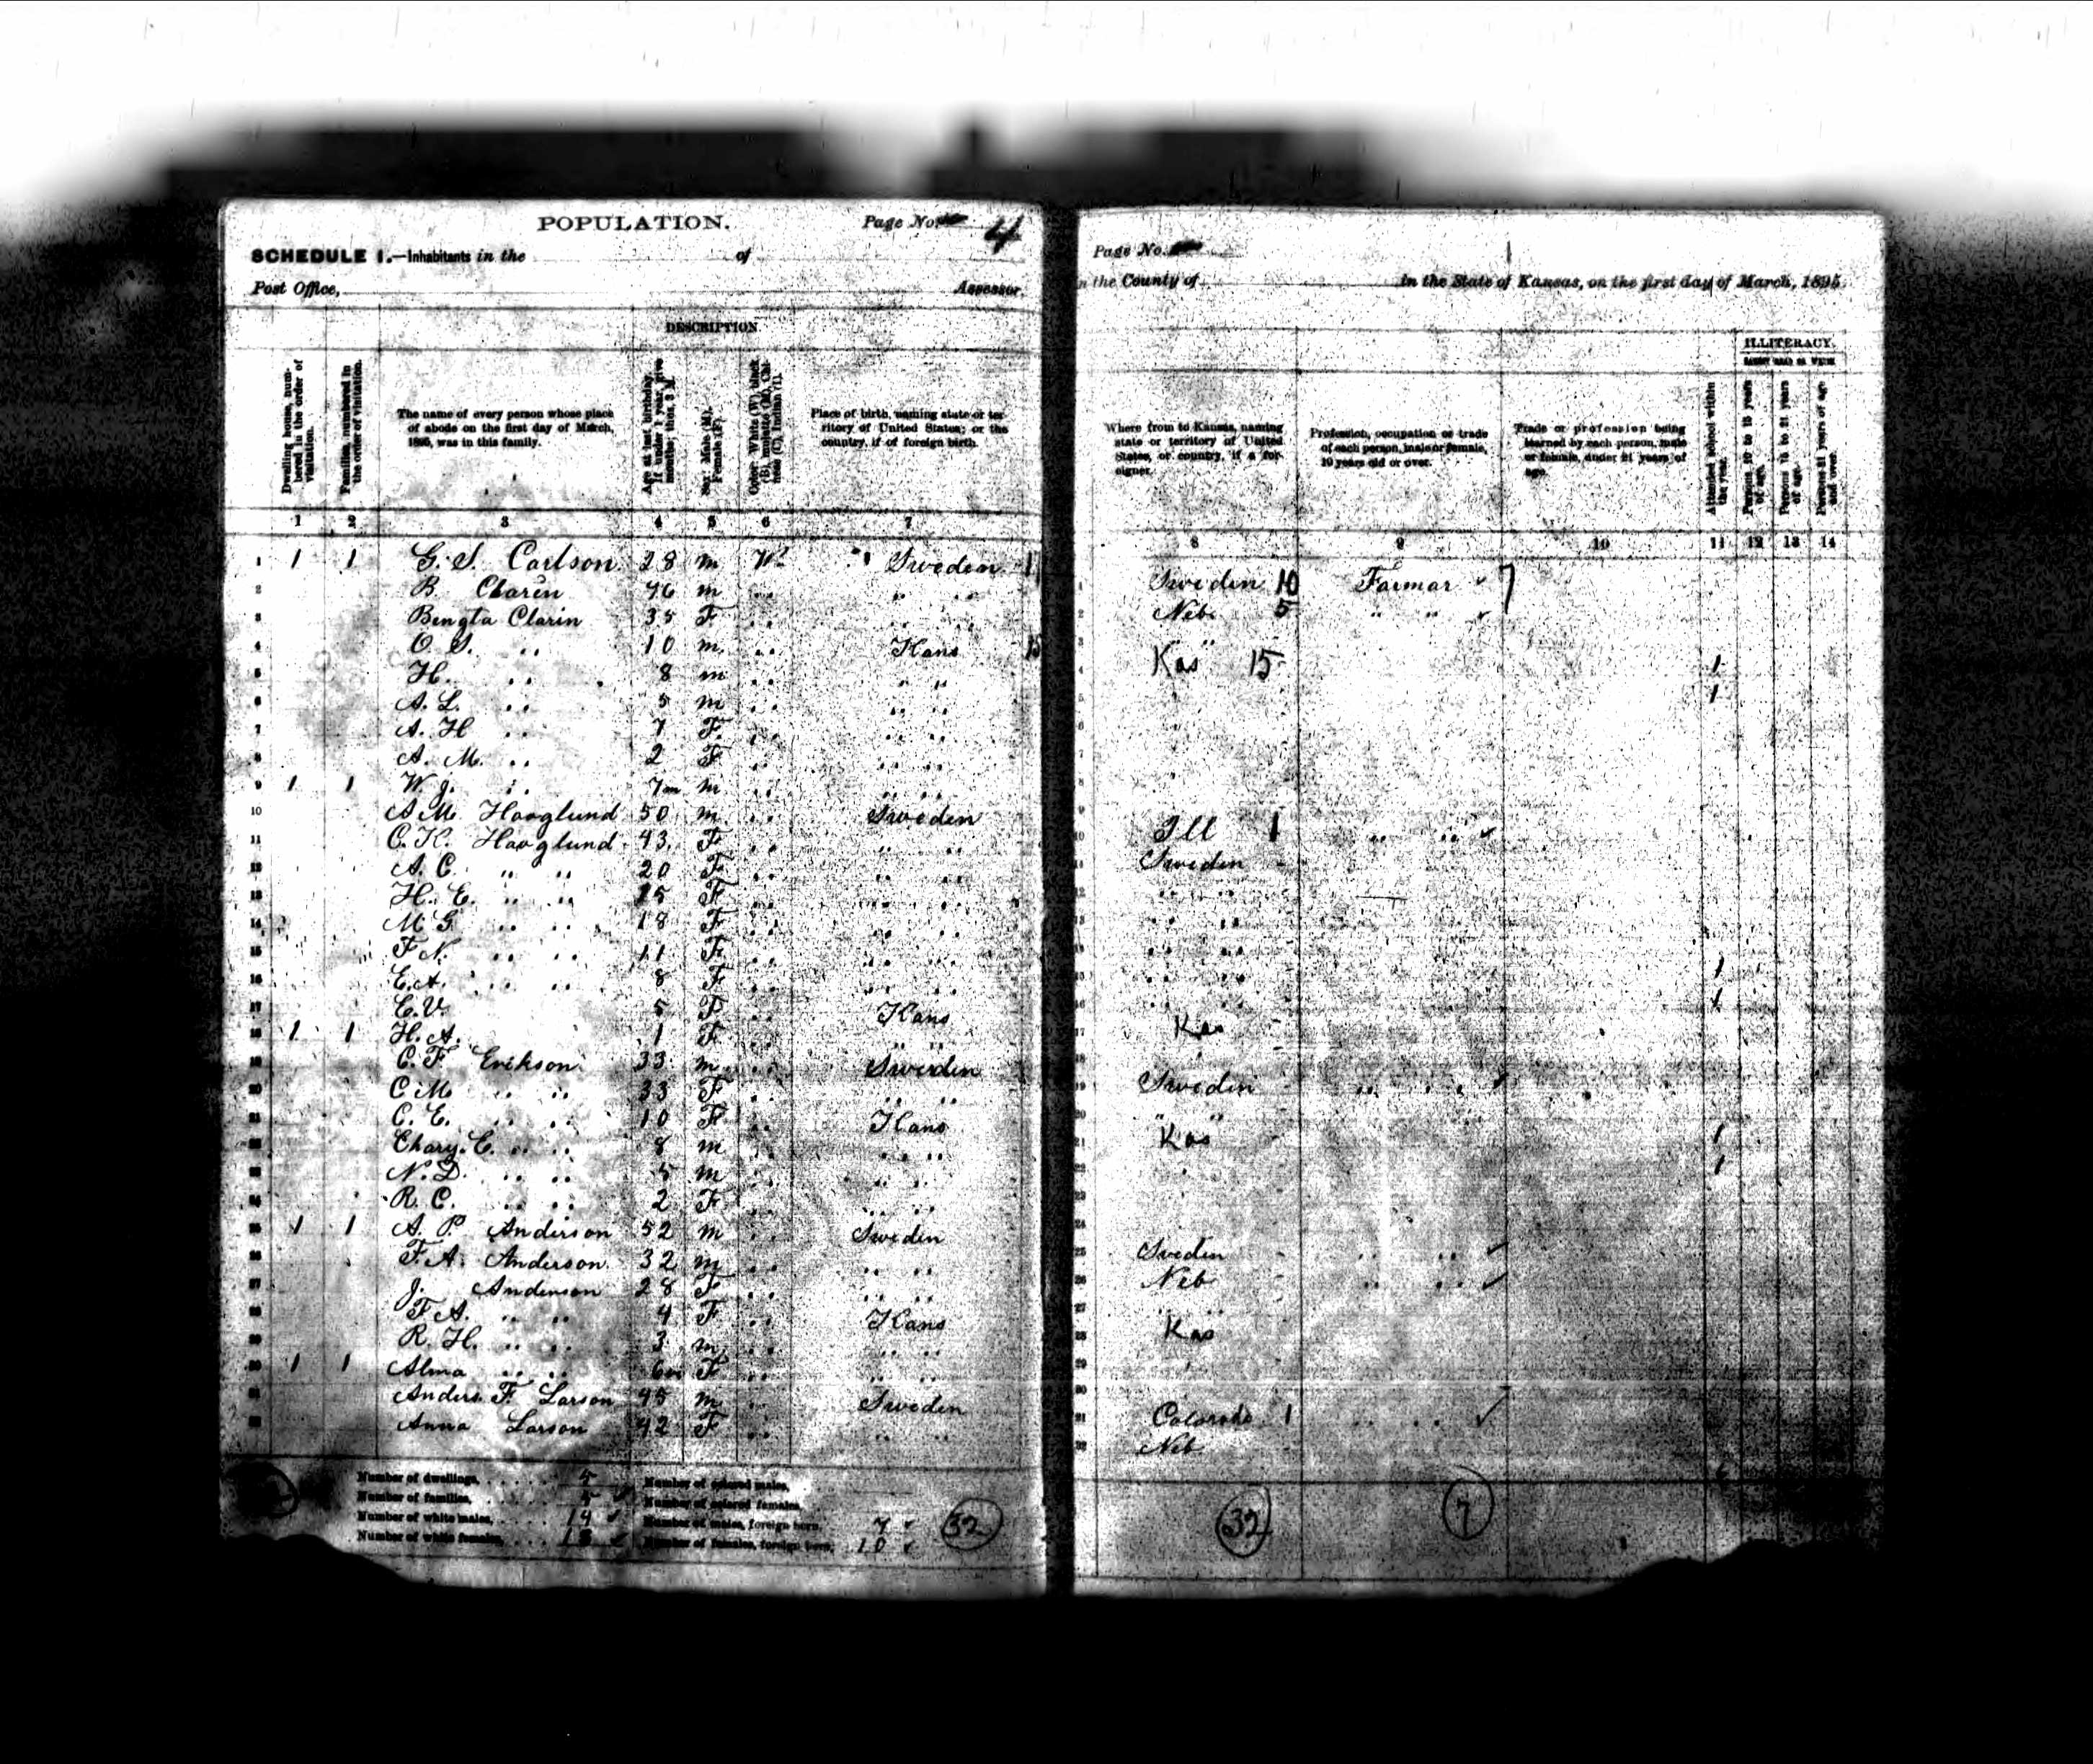 POPULATION. Page No. 4
SCHEDULE 1.—Inhabitants in the of
Post Office, Assessor.
DESCRIPTION
Dwelling house, numbered in the order of visitation.
Families, numbered in the order of visitation.
The name of every person whose place of abode on the first day of March, 1895, was in this family.
Age at last birthday. If under 1 year, give months; thus, 3 M.
Sex: Male (M), Female (F).
Color: White (W), black (B), mulatto (M), Chinese (C), Indian (I).
Place of birth, naming state or territory of United States; or the country, if of foreign birth.
1 2 3 4 5 6 7
1 1 1 G. S. Carlson 28 m W Sweden
2 B. Clarin 46 m " "
3 Bengta Clarin 35 F " "
4 O. S. " 10 m " Kans
5 H. " 8 m " "
6 A. L. " 5 m " "
7 A. H " 7 F " "
8 A. M. " 2 F " "
9 1 1 W. J. " 7m m " "
10 A M. Hooglund 50 m " Sweden
11 C. K. Hooglund 43 F " "
12 A. C. " " 20 F " "
13 H. E. " " 15 F " "
14 M G " " 18 F " "
15 F N. " " 11 F " "
16 E. A. " " 8 F " "
17 E. V. 5 F " Kans
18 1 1 H. A. 1 F " "
19 C. F. Erikson 33 m " Sweden
20 C M " " 33 F " "
21 C. E. " " 10 F " Kans
22 Chary. C. " " 8 m " "
23 N. D. " " 5 m " "
24 R. C. " " 2 F " "
25 1 1 A. P. Anderson 52 m " Sweden
26 F. A. Anderson 32 m " "
27 J. Anderson 28 F " "
28 F A. " " 4 F " Kans
29 R. H. " " 3 m " "
30 1 1 Alma " " 6m F " "
31 Anders F. Larson 45 m " Sweden
32 Anna Larson 42 F " "
Number of dwellings, 5 Number of colored males,
Number of families, 5 Number of colored females,
Number of white males, 14 Number of males, foreign born, 7
Number of white females, 18 Number of females, foreign born, 10 32
Page No.
in the County of in the State of Kansas, on the first day of March, 1895.
ILLITERACY.
Where from to Kansas, naming state or territory of United States, or country, if a foreigner.
Profession, occupation or trade of each person, male or female, 10 years old or over.
Trade or profession being learned by each person, male or female, under 21 years of age.
Attended school within the year.
Persons 10 to 15 years of age.
Persons 15 to 21 years of age.
Persons 21 years of age and over.
8 9 10 11 12 13 14
Sweden 10 Farmar 7
Neb 5 " "
" "
Kas 15 1
1
Ill 1 " "
Sweden
" "
" "
" "
" " 1
" " 1
Kas
Sweden " "
" "
Kas 1
1
Sweden " "
Neb " "
" "
Kas
Colorado 1 " "
Neb
32 7